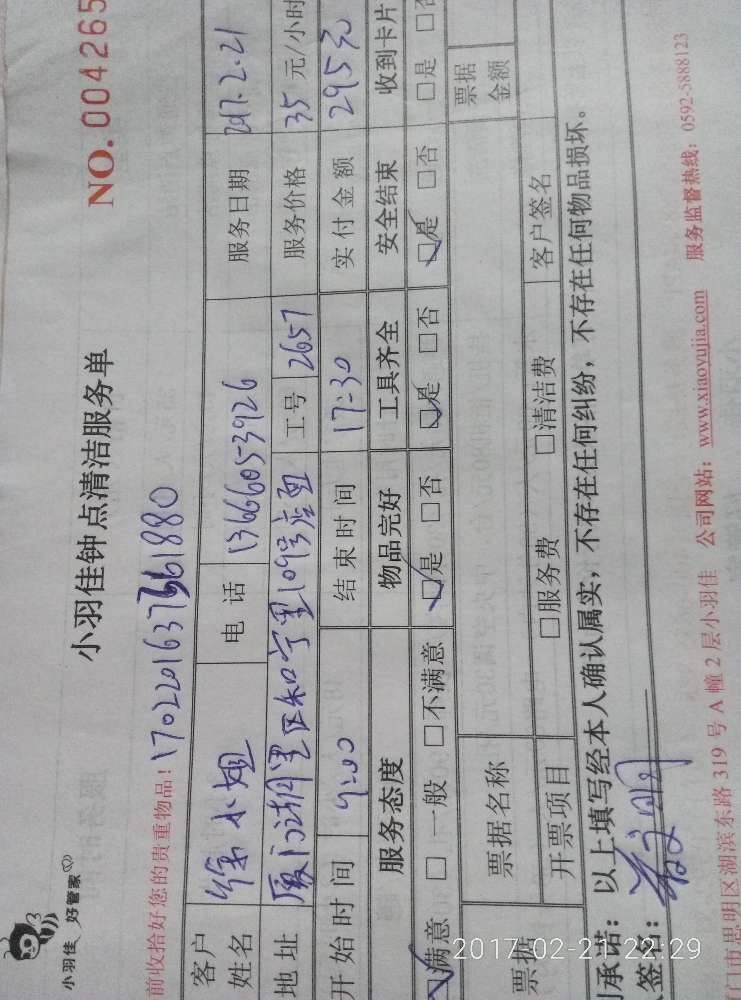 小羽佳 好管家
小羽佳钟点清洁服务单
NO. 004265
前收拾好您的贵重物品!
客户姓名 徐小姐 电话 13666053926 服务日期 2017.2.21
地址 工号 2657 服务价格 35 元/小时
开始时间 9:00 结束时间 17:30 实付金额 295元
服务态度 物品完好 工具齐全 安全结束 收到卡片
☑满意 □一般 □不满意 ☑是 □否 ☑是 □否 ☑是 □否 □是 □否
票据 票据名称 票据金额
开票项目 □服务费 □清洁费 客户签名
承诺:以上填写经本人确认属实,不存在任何纠纷,不存在任何物品损坏。
签名:
门市思明区湖滨东路 319 号 A 幢 2 层小羽佳 公司网站:www.xiaoyujia.com 服务监督热线:0592-5888123
2017-02-21 22:29